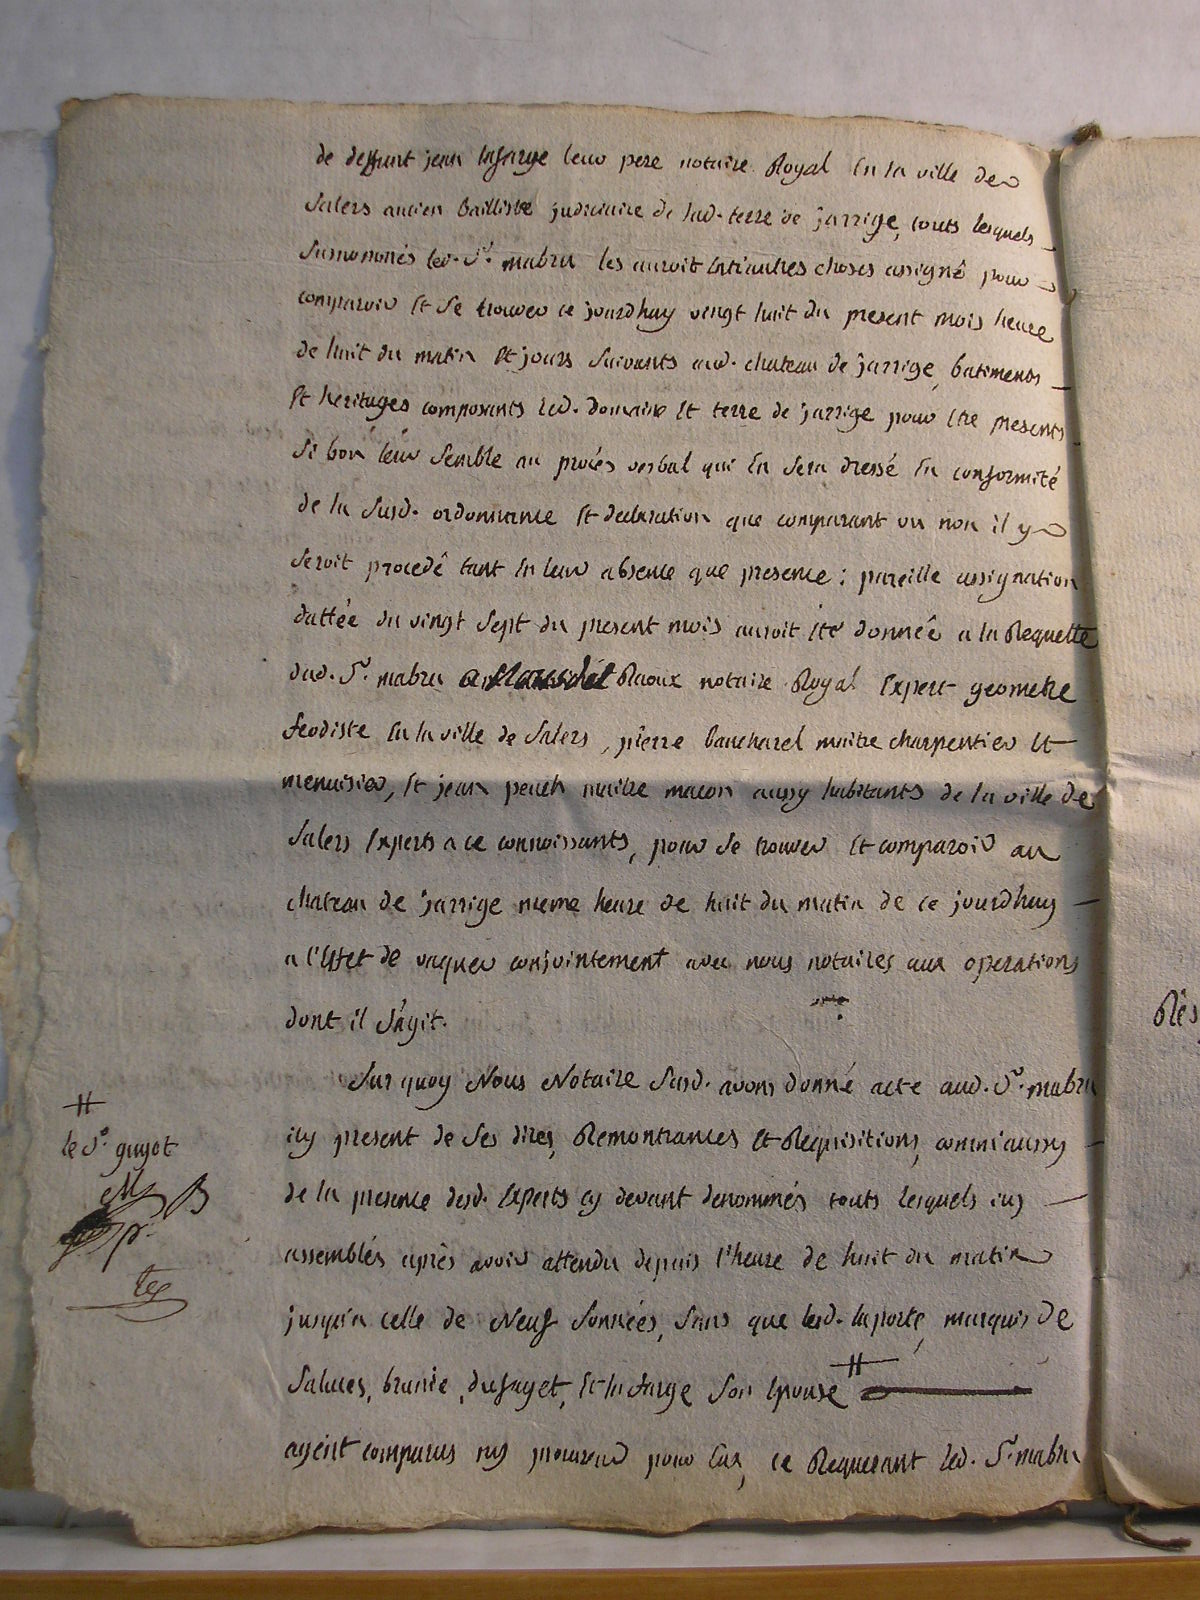 de deffunt jean lafarge leur pere notaire Royal En la ville de
Salers ancien bailliste judiciaire de lad. terre de jarrige, touts lesquels
Surnommés led. Sr. mabru les auroit Entr'autres choses assigné pour
comparoir Et Se trouver ce jourdhuy vingt huit du present mois heure
de huit du matin Et jours Suivants aud. chateau de jarrige, batiments
Et heritages composants led. domaine Et terre de jarrige pour Etre presents
Si bon leur Semble au procés verbal qui En Sera dressé En conformité
de la Susd. ordonnance Et declaration que comparant ou non il y
Seroit procedé tant En leur absence que presence : pareille assignation
dattée du vingt Sept du present mois auroit Eté donnée a la Requette
dud. Sr. mabru a Raoux notaire Royal Expert geometre
feodiste En la ville de Salers, pierre bancharel maitre charpentier Et
menuisier, Et jean peuch maitre macon aussy habitants de la ville de
Salers Experts a ce connoissants, pour Se trouver Et comparoir au
chateau de jarrige meme heure de huit du matin de ce jourdhuy
a l'Effet de vaquer conjointement avec nous notaires aux operations
dont il S'agit.
Sur quoy Nous Notaire Susd. avons donné acte aud. Sr. mabru
icy present de Ses dires, Remontrances Et Requisitions, comm'aussy
de la presence desd. Experts cy devant denommés touts lesquels icy
assemblés après avoir attendu depuis l'heure de huit du matin
jusqu'a celle de Neuf Sonnées, Sans que lesd. laporte, marquis de
Saluces, brance, dufayet, Et lafarge Son Epouse #
ayent comparus ny procureur pour Eux, ce Requerant led. Sr. mabru
#
le Sr. guyot
Rés